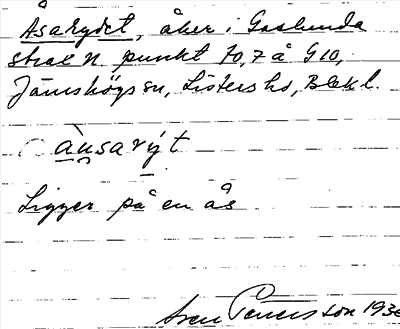 Åsarydet, åker i Gaslunda
strax N. punkt 70,7 å G10,
Jämshögs sn, Listers hd, Blek l.
ànsarýt
Ligger på en ås
Sven Persson 1936